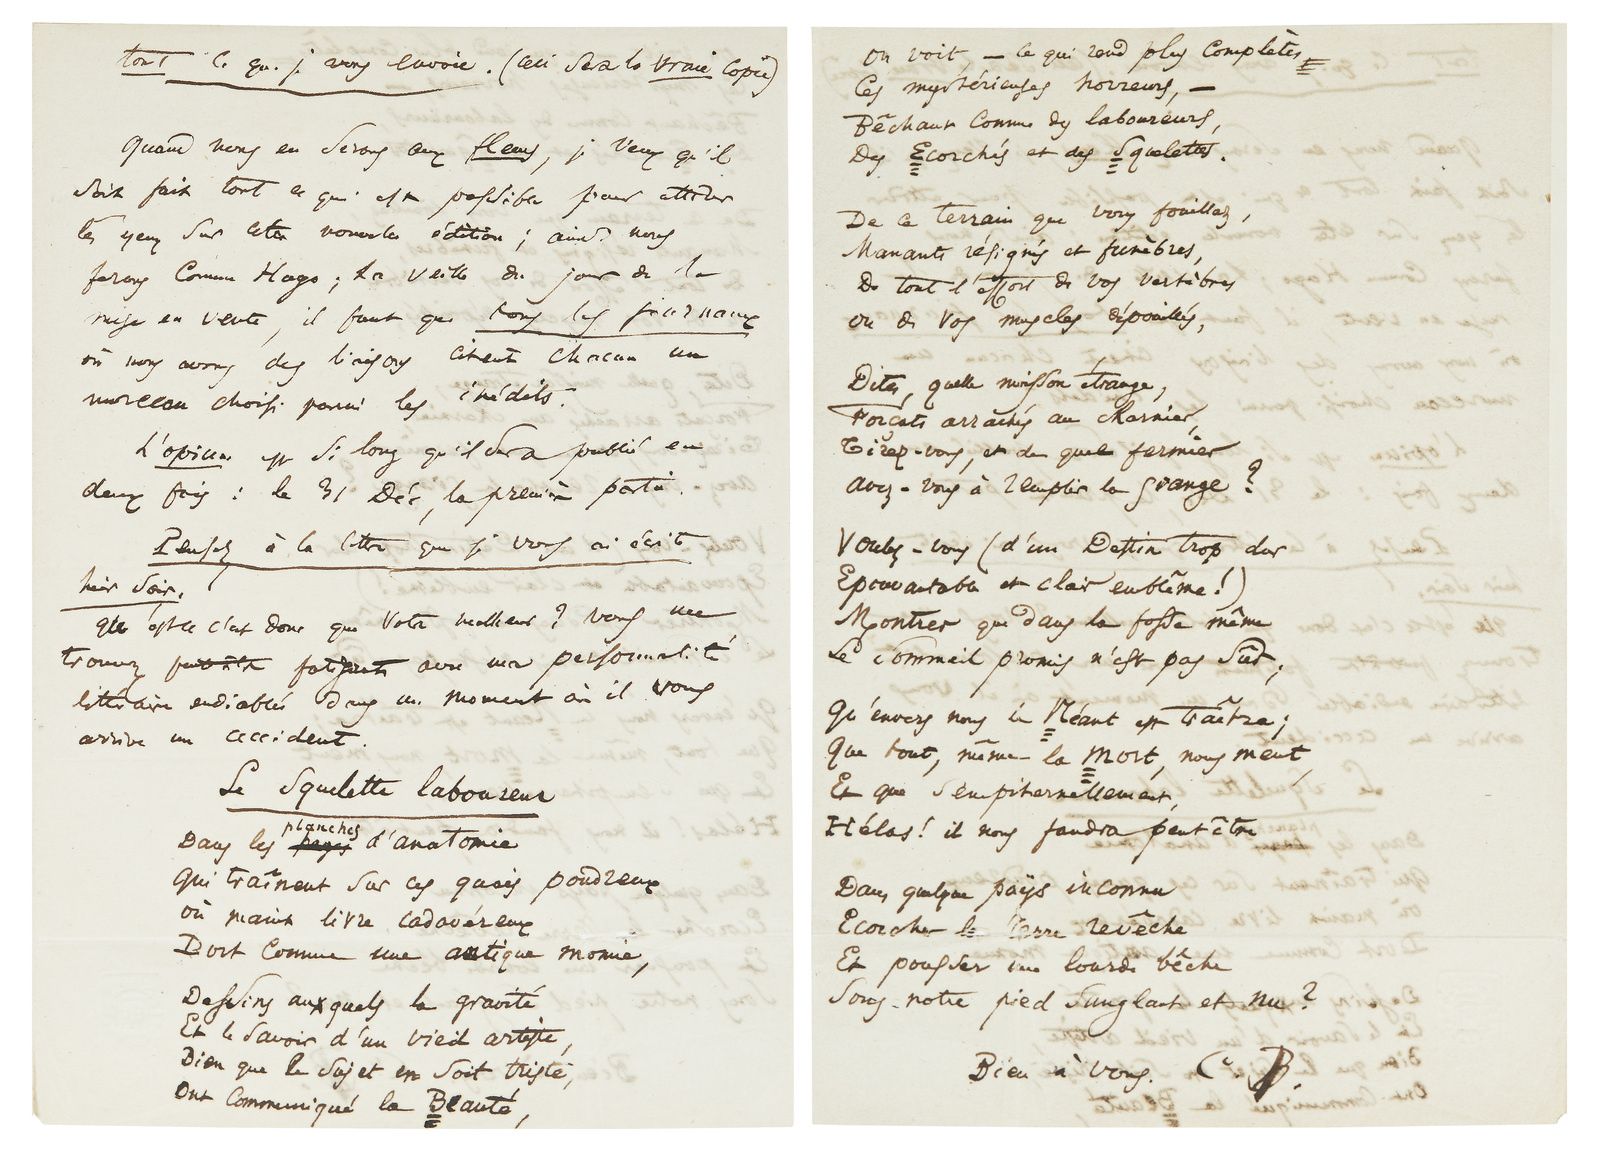 tout ce que je vous envoie. (Ceci sera la vraie copie)
Quand nous en serons aux fleurs, je veux qu'il
soit fait tout ce qui est possible pour attirer
les yeux sur cette nouvelle édition ; ainsi nous
ferons comme Hugo ; la veille du jour de la
mise en vente, il faut que tous les journaux
où nous avons des liaisons citent chacun un
morceau choisi parmi les inédits.
L'opium est si long qu'il sera publié en
deux fois : le 31 Déc, la première partie.
Pensez à la lettre que je vous ai écrite
hier soir.
Qu'est-ce c'est donc que votre malheur ? vous me
trouvez fatigant avec ma personnalité
littéraire endiablée dans un moment où il vous
arrive un accident.
Le Squelette laboureur
Dans les planches d'anatomie
Qui traînent sur ces quais poudreux
Où maint livre cadavéreux
Dort comme une antique momie,
Dessins auxquels la gravité
Et le savoir d'un vieil artiste,
Bien que le sujet en soit triste,
Ont communiqué la Beauté,
On voit, — ce qui rend plus complètes
Ces mystérieuses horreurs, —
Bêchant comme des laboureurs,
Des Ecorchés et des Squelettes.
De ce terrain que vous fouillez,
Manants résignés et funèbres,
De tout l'effort de vos vertèbres
Ou de vos muscles dépouillés,
Dites, quelle moisson étrange,
Forçats arrachés au charnier,
Tirez-vous, et de quel fermier
Avez-vous à remplir la grange ?
Voulez-vous (d'un Destin trop dur
Epouvantable et clair emblême !)
Montrer que dans la fosse même
Le sommeil promis n'est pas sûr ;
Qu'envers nous le Néant est traître ;
Que tout, même la Mort, nous ment,
Et que sempiternellement,
Hélas ! il nous faudra peut être
Dans quelque pays inconnu
Ecorcher la terre revêche
Et pousser une lourde bêche
Sous notre pied sanglant et nu ?
Bien à vous. C. B.